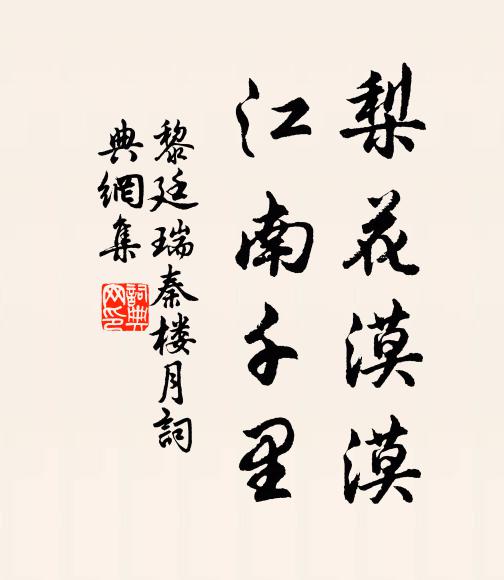 梨花漠漠
江南千里
黎廷瑞秦楼月詞
典網集
詞典网印